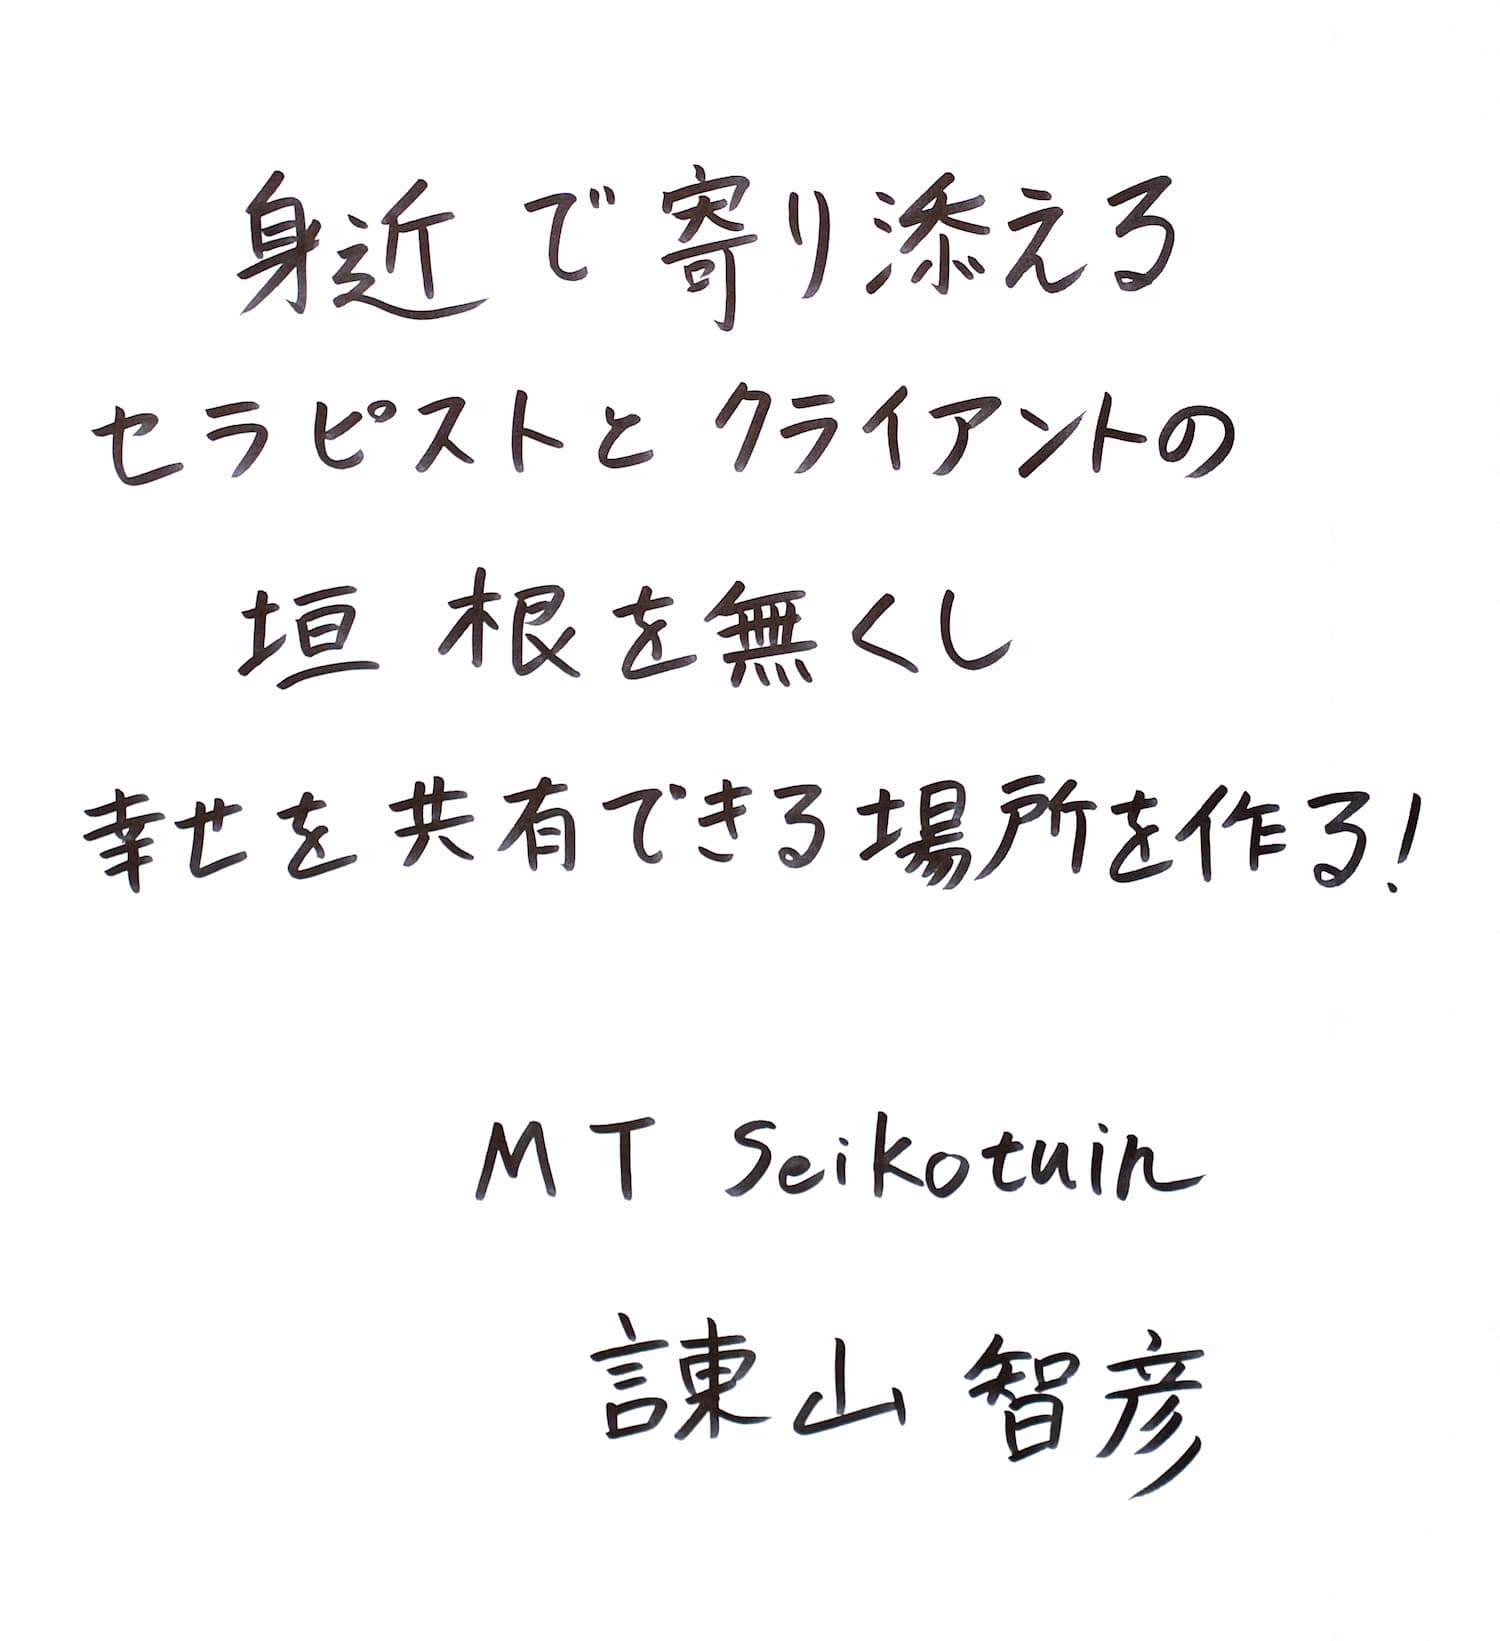 身近で寄り添える
セラピストとクライアントの
垣根を無くし
幸せを共有できる場所を作る!
MT Seikotuin
諌山 智彦